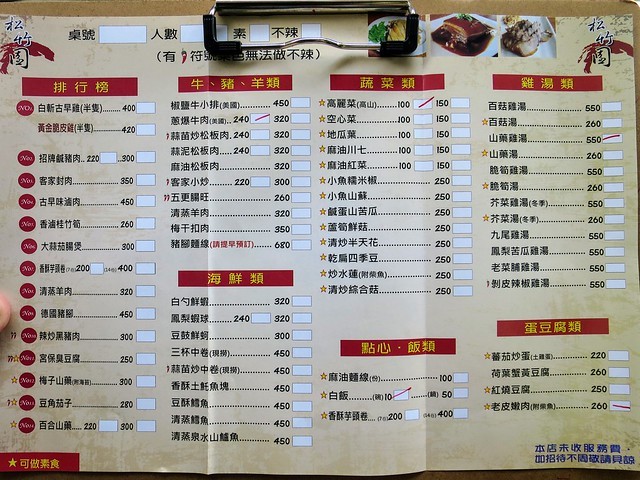 松竹園
桌號 人數 素 不辣
(有 符號 無法做不辣)
松竹園
排行榜
NO1 白斬古早雞(半隻) 400
黃金脆皮雞(半隻) 420
招牌鹹豬肉 220 300
客家封肉 350
古早味滷肉 450
香滷桂竹筍 260
大蒜茄腸煲 300
香酥芋頭卷(7份)200 (14份)400
清蒸羊肉 320
德國豬腳 450
辣炒黑豬肉 300
宮保臭豆腐 250
梅子山藥(附海苔) 300
豆角茄子 280
百合山藥 220 300
★可做素食
牛、豬、羊類
椒鹽牛小排(美國) 450
蔥爆牛肉(美國) 240 320
蒜苗炒松板肉 240 320
蒜泥松板肉 240 320
麻油松板肉 320
客家小炒 220 300
五更腸旺 260
清蒸羊肉 320
梅干扣肉 350
豬腳麵線(請提早預訂) 680
海鮮類
白勺鮮蝦 320
鳳梨蝦球 240 320
豆鼓鮮蚵 300
三杯中卷(現撈) 450
蒜苗炒中卷(現撈) 450
香酥土魠魚塊 450
豆酥鱈魚 450
清蒸鱈魚 450
清蒸泉水山鱸魚 450
蔬菜類
☆高麗菜(高山) 100 150
☆空心菜 100 150
☆地瓜葉 100 150
☆麻油川七 100 150
☆麻油紅菜 100 150
☆小魚糯米椒 250
☆小魚山蘇 250
☆鹹蛋山苦瓜 250
☆蘆筍鮮菇 250
☆清炒半天花 250
☆乾扁四季豆 250
☆炒水蓮(附柴魚) 250
☆清炒綜合菇 250
點心‧飯類
☆麻油麵線(份) 100
☆白飯 (碗)10 (鍋) 50
☆香酥芋頭卷 (7份)200 (14份)400
雞湯類
百菇雞湯 550
☆百菇湯 260
山藥雞湯 550
☆山藥湯 260
脆筍雞湯 550
☆脆筍湯 260
芥菜雞湯(冬季) 550
☆芥菜湯(冬季) 260
九尾雞湯 550
鳳梨苦瓜雞湯 550
老菜脯雞湯 550
剝皮辣椒雞湯 550
蛋豆腐類
☆蕃茄炒蛋(土雞蛋) 220
荷葉蟹黃豆腐 260
☆紅燒豆腐 250
☆老皮嫩肉(附柴魚) 260
本店未收服務費,
如招待不周敬請見諒